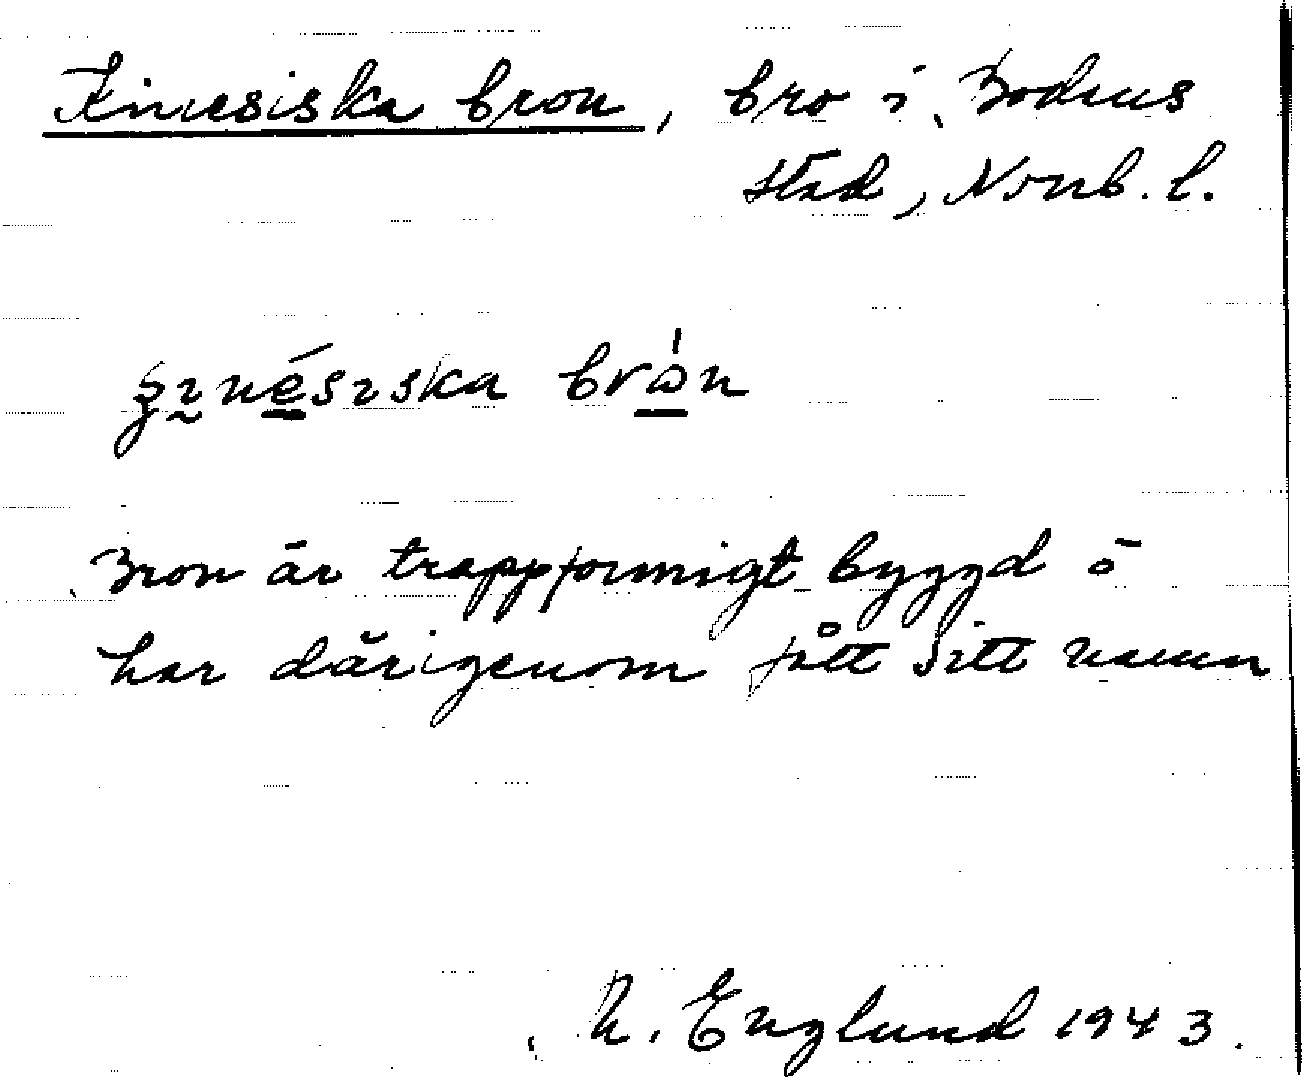 Kinesiska bron, bro i Bodens
stad, Norrb. l.
bron
Bron är trappformigt byggd o
har därigenom fått sitt namn
N. Englund 1943.